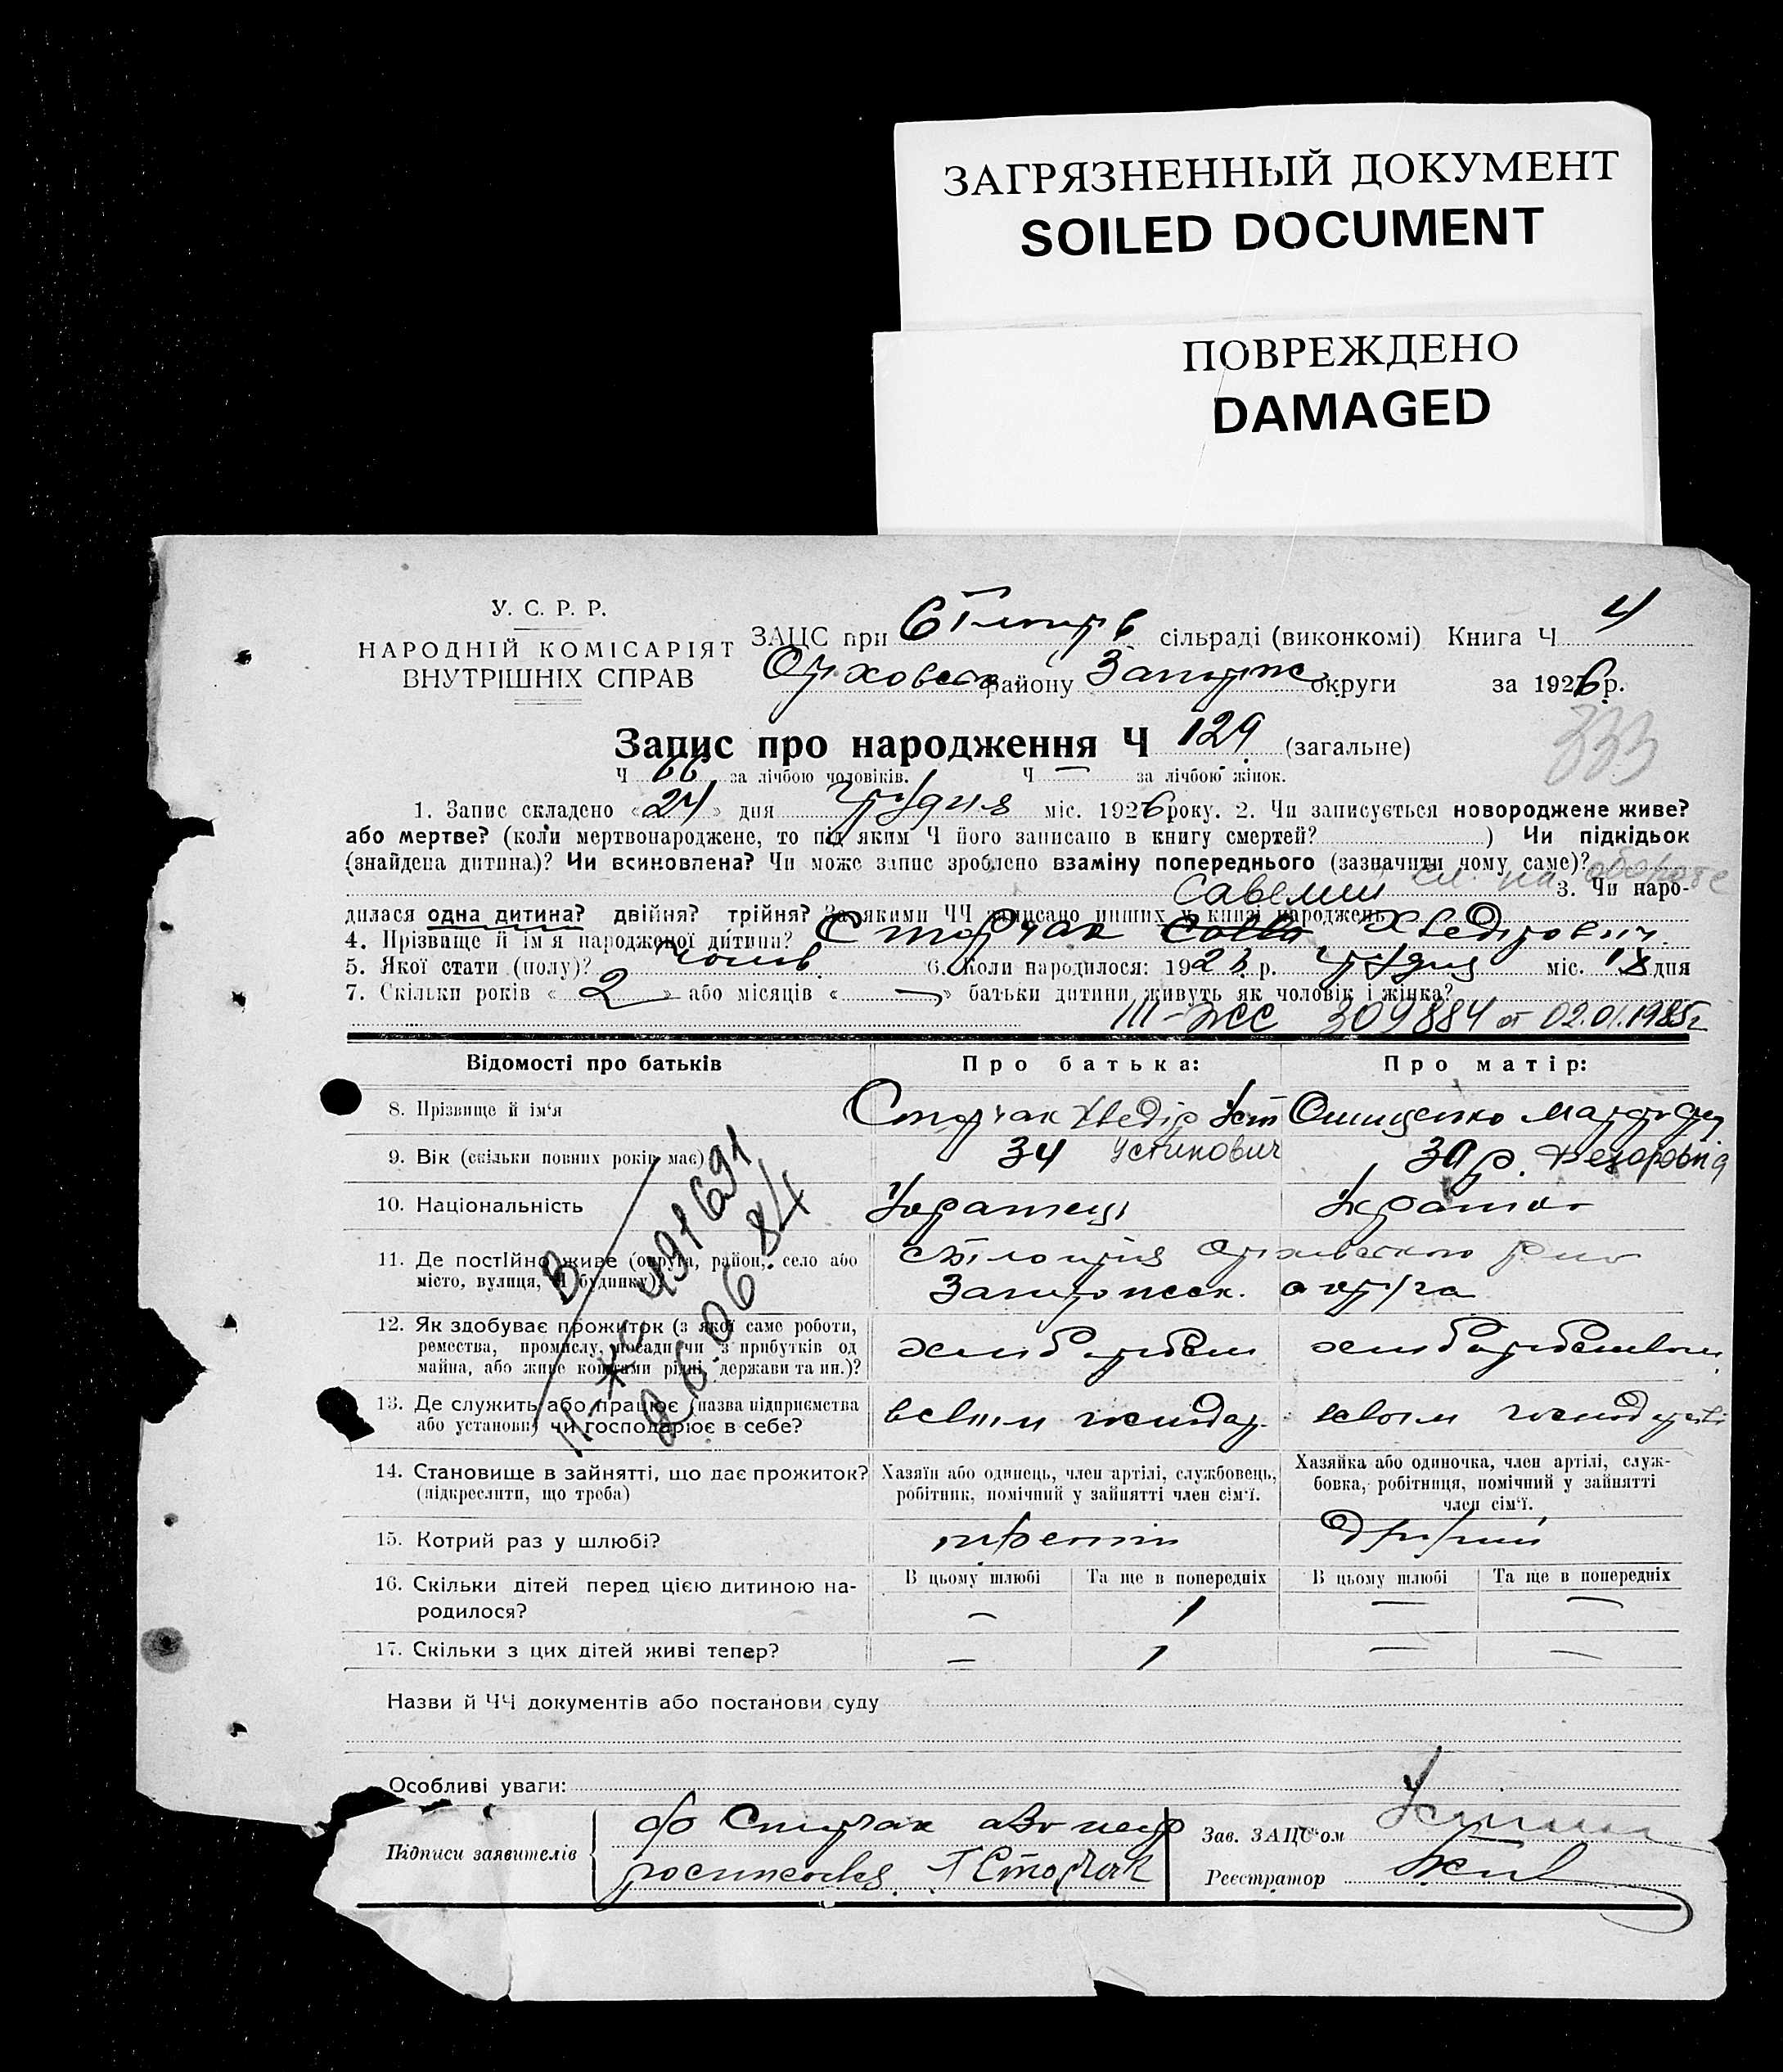 ЗАГРЯЗНЕННЫЙ ДОКУМЕНТ
SOILED DOCUMENT
ПОВРЕЖДЕНО
DAMAGED
У. С. Р. Р.
НАРОДНІЙ КОМІСАРІЯТ
ВНУТРІШНІХ СПРАВ
ЗАЦС при сільраді (виконкомі) Книга Ч 4
району Запорж округи за 1926 р.
Запис про народження Ч 129 (загальне)
333
Ч 66 за лічбою чоловіків. Ч — за лічбою жінок.
1. Запис складено «24» дня грудня міс. 1926 року. 2. Чи записується новороджене живе?
або мертве? (коли мертвонароджене, то під яким Ч його записано в книгу смертей? ) Чи підкідьок
(знайдена дитина)? Чи всиновлена? Чи може запис зроблено взаміну попереднього (зазначити чому саме)? см. на обороте
Савелий 3. Чи наро-
дилася одна дитина? двійня? трійня? За якими ЧЧ записано инших у книзі народжень
4. Прізвище й ім'я народженої дитини? Сторчак Савва Хведірович
5. Якої стати (полу)? чолов. 6. Коли народилося: 192 р. грудня міс. 18 дня
7. Скільки років «2» або місяців «—» батьки дитини живуть як чоловік і жінка?
III-ЖС 309884 от 02.01.1985г
Відомості про батьків Про батька: Про матір:
8. Прізвище й ім'я Сторчак Хведір Уст Онищенко
9. Вік (скільки повних років має) 34 Устинович 30 р. Федоровна
10. Національність Українець Українка
11. Де постійно живе (округа, район, село або
місто, вулиця, Ч будинку)
Запорожск. округа
12. Як здобуває прожиток (з якої саме роботи,
ремества, промислу, посади чи з прибутків од
майна, або живе коштами рідні, держави та ин.)?
хлібороб хліборобством
13. Де служить або працює (назва підприємства
або установи) чи господарює в себе?
в своїм господар. в своїм господарстві
II-ЖС 491691
26.06.84
14. Становище в зайнятті, що дає прожиток?
(підкреслити, що треба)
Хазяїн або одинець, член артілі, службовець,
робітник, помічний у зайнятті член сім'ї.
Хазяйка або одиночка, член артілі, служ-
бовка, робітниця, помічний у зайнятті
член сім'ї.
15. Котрий раз у шлюбі? другий
16. Скільки дітей перед цією дитиною на-
родилося?
В цьому шлюбі Та ще в попередніх В цьому шлюбі Та ще в попередніх
— 1 — —
17. Скільки з цих дітей живі тепер? — 1 — —
Назви й ЧЧ документів або постанови суду
Особливі уваги:
Підписи заявителів Сторчак
Сторчак
Зав. ЗАЦС'ом
Реєстратор